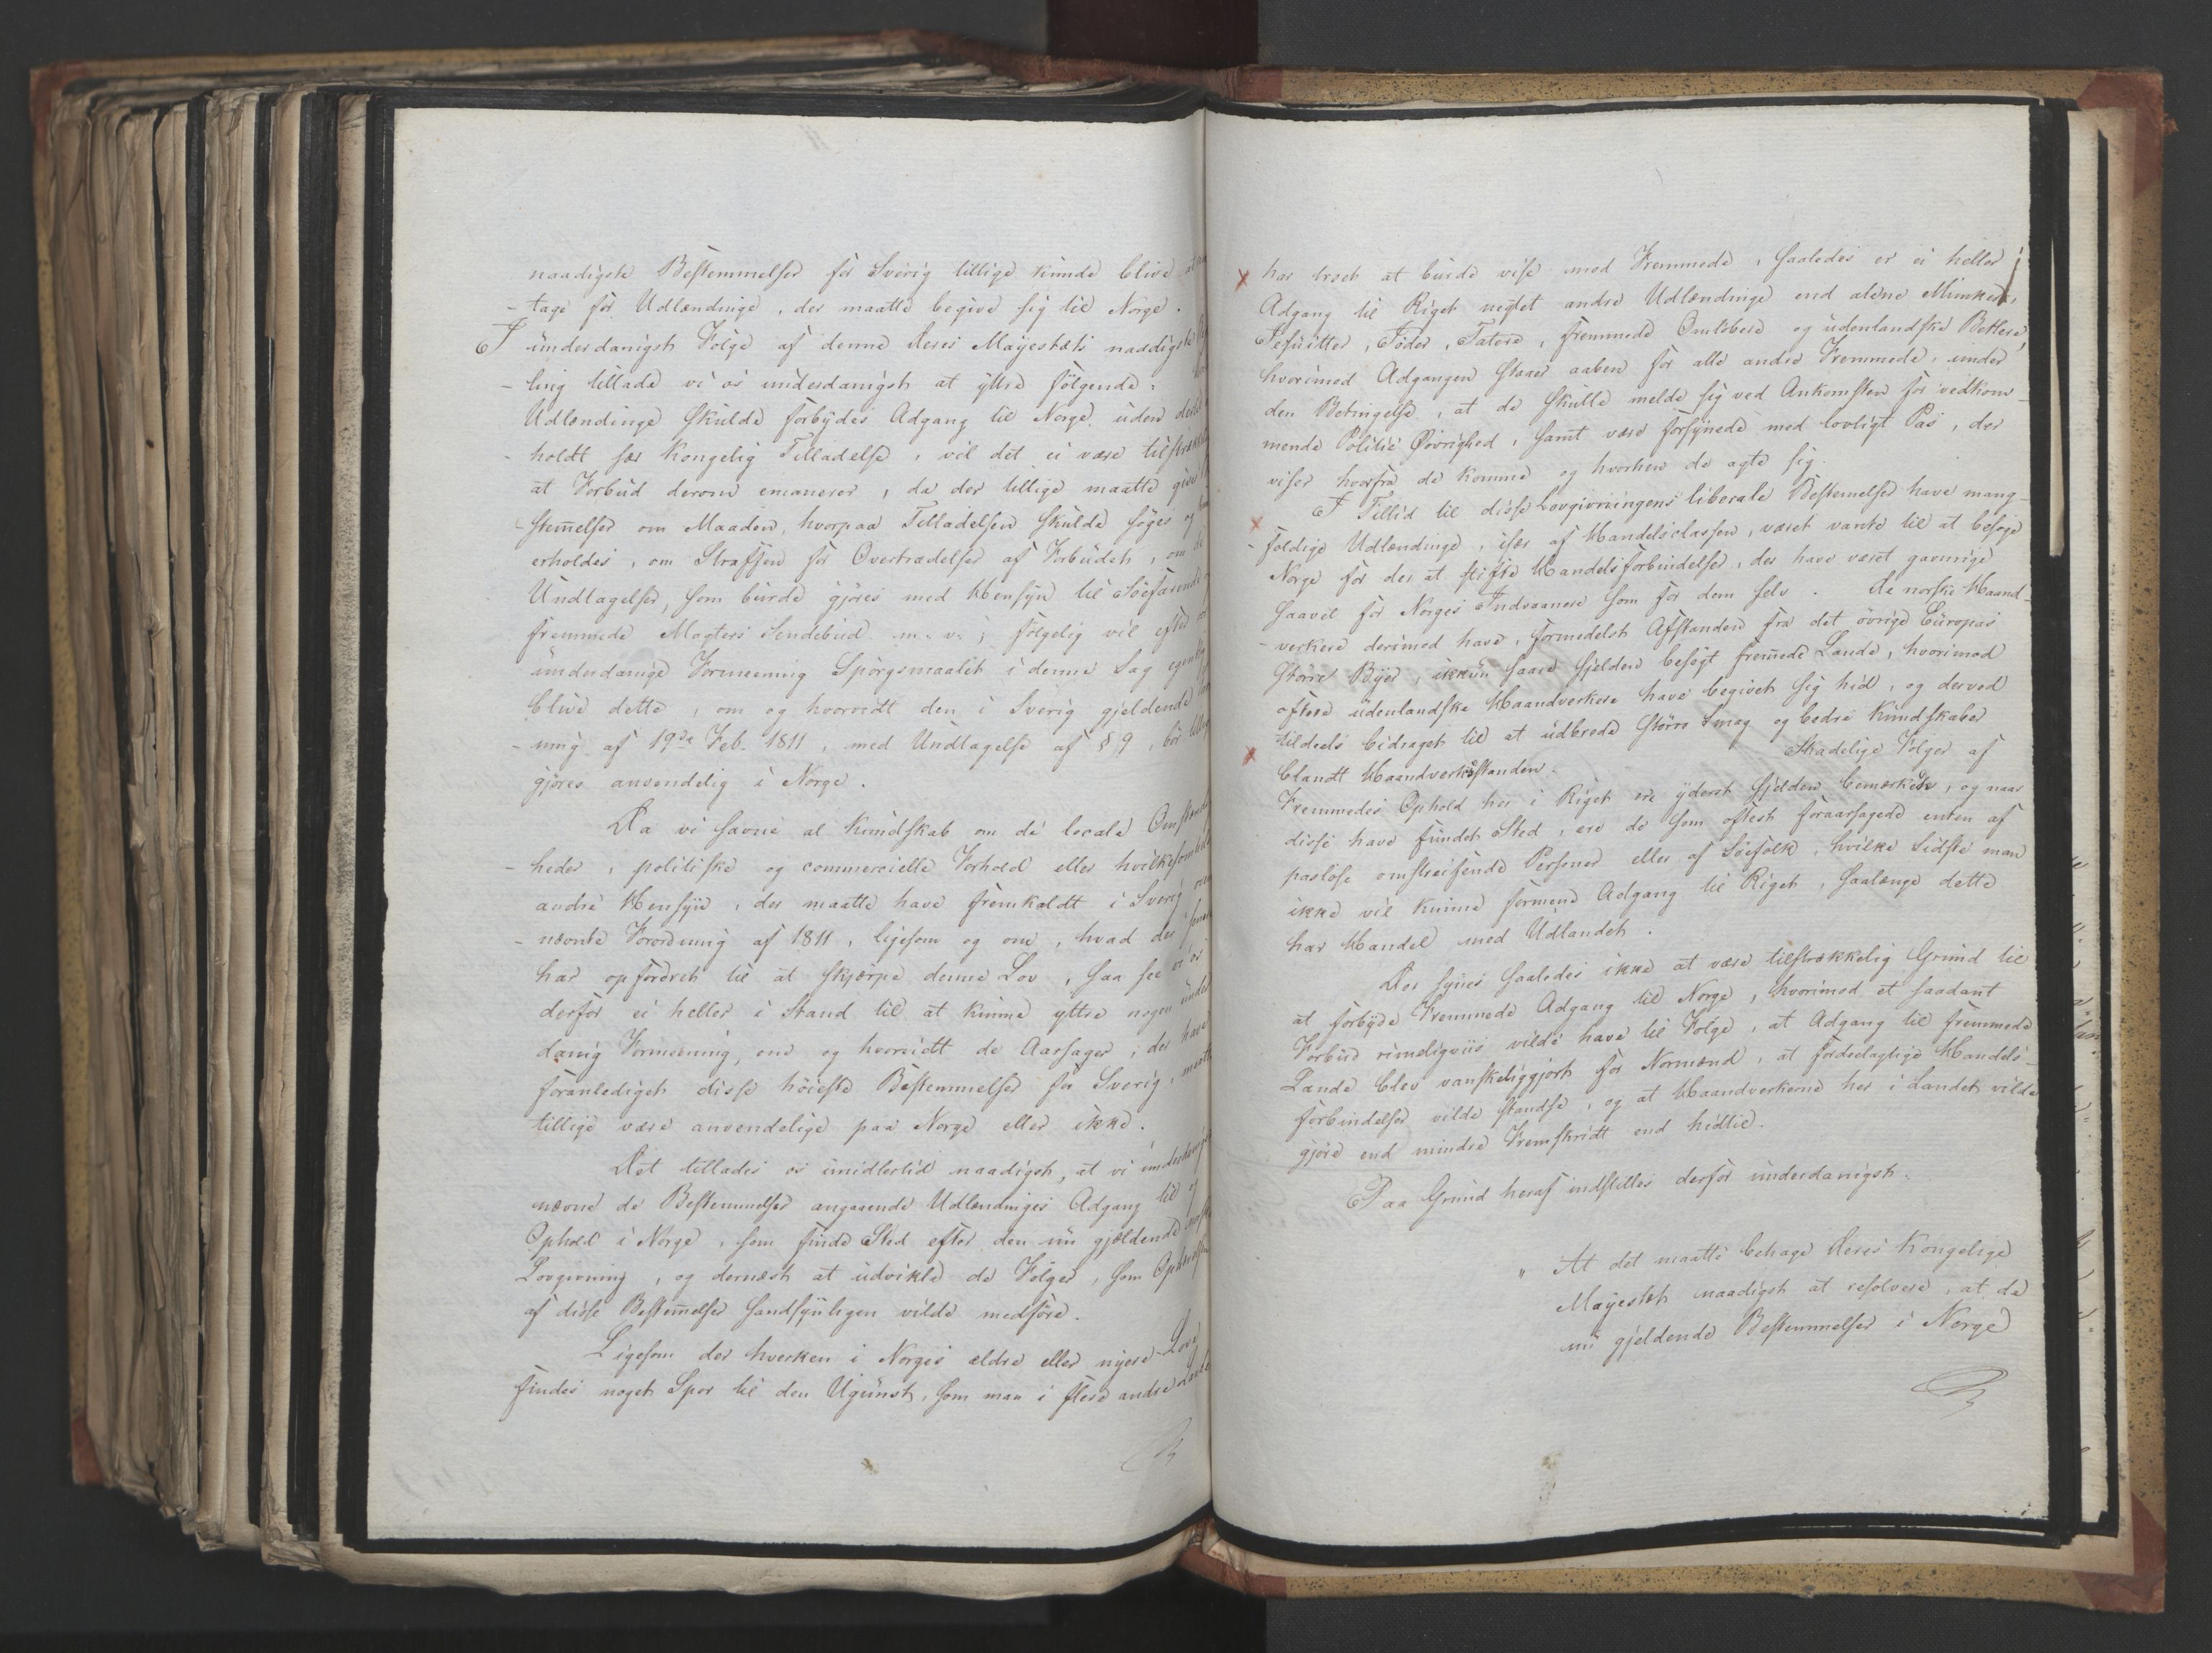 naadigste Bestemmelser for Sverig tillige kunde blive at an
- tage for Udlændinge, der maatte begive sig til Norge.
I underdanigst Følge af denne Deres Mayestæts naadigste
- ling tillade vi os underdanigst at yttre følgende:
Udlændinge skulde forbydes Adgang til Norge uden dertil
- holdt sær Kongelig Tilladelse, vil det ei være tilstrækkel
at Forbud derom emanerer, da der tillige maatte gives
- stem̄elser om Maaden, hvorpaa Tilladelsen skulde søges og
erholdes, om Straffen for Overtrædelser af Forbudet, om de
Undtagelser, som burde gjøres med Hensyn til Søefarende
fremmede Magters Sendebud m. v.; følgelig vil efter vor
underdanige Formeening Spørgsmaalet i denne Sag egentlig
blive dette, om og hvorvidt den i Sverig gjeldende
- ning af 19de Feb. 1811, med Undtagelse af § 9, bør tillige
gjøres anvendelig i Norge.
Da vi savne al Kundskab om de locale Omstændig
- heder, politiske og commercielle Forhold eller hvilkesomhelst
andre Hensyn, der maatte have fremkaldt i Sverig oven
- nævnte Forordning af 1811, ligesom og om, hvad der senere
har opfordret til at skjærpe denne Lov, saa see vi os
derfor ei heller i Stand til at kunne yttre nogen under
danig Formeening, om og hvorvidt de Aarsager, der have
foranlediget disse høieste Bestemmelser for Sverig, maatte
tillige være anvendelige paa Norge eller ikke.
Det tillades os imidlertid naadigst, at vi underdanigst
nævne de Bestemmelser angaaende Udlændinges Adgang til og
Ophold i Norge, som finde Sted efter den nu gjældende norske
Lovgivning, og dernæst at udvikle de Følger, som Ophævelsen
af disse Bestem̄elser sandsynligen vilde medføre.
Ligesom der hverken i Norges ældre eller nyere Love
findes noget Spor til den Ugunst, som man i flere andre Lande
har troet at burde vise mod Fremmede, saaledes er ei heller
Adgang til Riget negtet andre Udlændinge end alene Munker,
Jesuitter, Jøder, Tatere, fremmede Omløbere og udenlandske Betlere,
hvorimod Adgangen staaer aaben for alle andre Fremmede, under
den Betingelse, at de skulle melde sig ved Ankomsten for vedkom-
mende Politie Øvrighed, samt være forsynede med lovligt Pas, der
viser hvorfra de komme og hvorhen de agte sig.
I Tillid til disse Lovgivningens liberale Bestemelser have mang-
- foldige Udlændinge, især af Handelsclassen, været vante til at besøge
Norge for der at stifte Handelsforbindelser, der have været gavnrige
saavel for Norges Indvaanere som for dem selv. De norske Haand-
- verkere derimod have, formedelst Afstanden fra det øvrige Europas
større Byer, ikkun saare sjelden besøgt frem̄ede Lande, hvorimod
oftere udenlandske Haandverkere have begivet sig hid, og derved
tildeels bidraget til at udbrede større Smag og bedre Kundskaber
blandt Haandverksstanden. Skadelige Følger af
Fremmedes Ophold her i Riget ere yderst sjelden bemærkede, og naar
disse have fundet Sted, ere de som oftest foraarsagede enten af
pasløse omstreifende Personer eller af Søefolk, hvilke Sidste man
ikke vil kunne formene Adgang til Riget, saalænge dette
har Handel med Udlandet.
Der synes saaledes ikke at være tilstrækkelig Grund til
at forbyde Fremmede Adgang til Norge, hvorimod et saadant
Forbud rimeligviis vilde have til Følge, at Adgang til fremmede
Lande blev vanskeliggjort for Normænd, at fordeelagtige Handels-
forbindelser vilde standse, og at Haandverkerne her i Landet vilde
gjøre end mindre Fremskridt end hidtil.
Paa Grund heraf indstilles derfor underdanigst:
" At det maatte behage Deres Kongelige
Mayestæt naadigst at resolvere, at de
nu gjeldende Bestemmelser i Norge